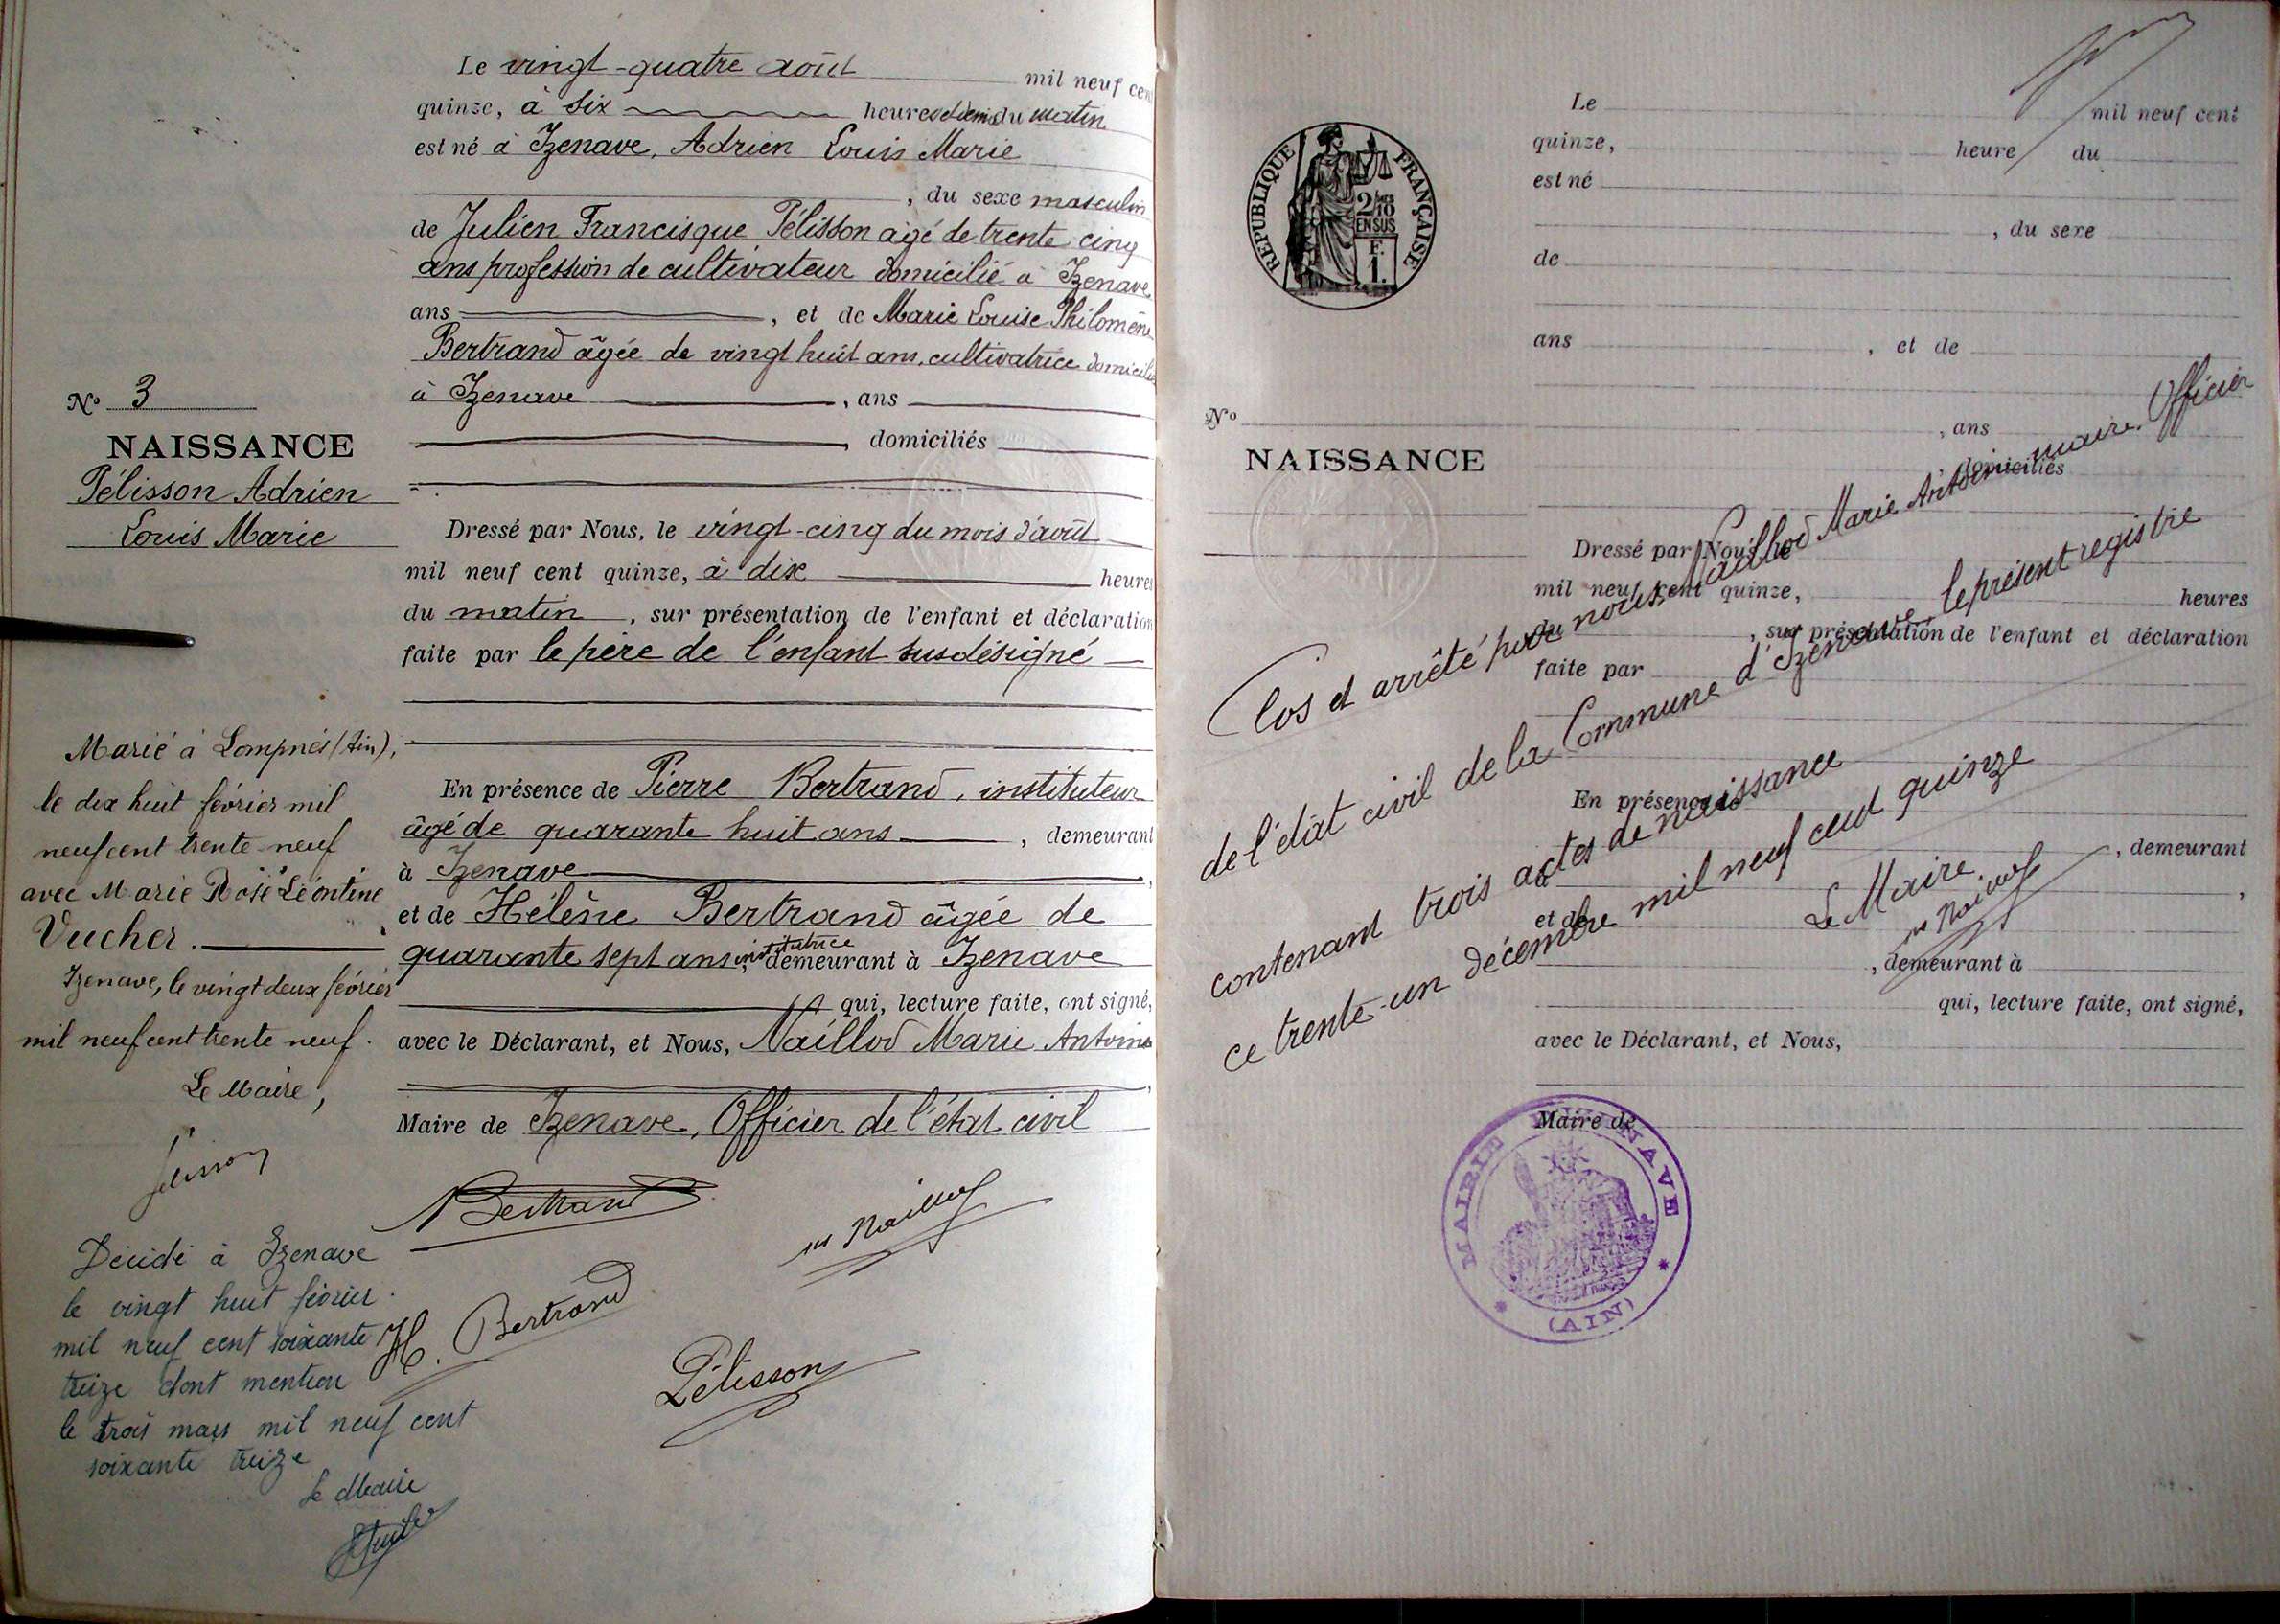 Le vingt-quatre août mil neuf cent
quinze, à six heures et demi du matin
est né à Izenave, Adrien Louis Marie
, du sexe masculin
de Julien Francisque Pélisson agé de trente cinq
ans profession de cultivateur domicilié à Izenave
ans , et de Marie Louise Philomène
Bertrand âgée de vingt huit ans, cultivatrice domiciliée
à Izenave , ans
, domiciliés
Nº 3
NAISSANCE
Pélisson Adrien
Louis Marie
Dressé par Nous, le vingt-cinq du mois d'août
mil neuf cent quinze, à dix heures
du matin , sur présentation de l'enfant et déclaration
faite par le père de l'enfant susdésigné
En présence de Pierre Bertrand, instituteur
âgé de quarante huit ans , demeurant
à Izenave ,
et de Hélène Bertrand âgée de
quarante sept ans, institutrice demeurant à Izenave
qui, lecture faite, ont signé,
avec le Déclarant, et Nous, Naillod Marie Antoine
Maire de Izenave, Officier de l'état civil
Bertrand
m Naillod
H. Bertrand
Pélisson
Marié à Lompnès (Ain),
le dix huit février mil
neuf cent trente neuf
avec Marie Rose Léontine
Vucher.
Izenave, le vingt deux février
mil neuf cent trente neuf.
Le Maire,
Pélisson
Décédé à Izenave
le vingt huit février
mil neuf cent soixante
treize dont mention
le trois mars mil neuf cent
soixante treize
Le Maire
Le mil neuf cent
quinze, heure du
est né
, du sexe
de
ans , et de
, ans
domiciliés
RÉPUBLIQUE FRANÇAISE
2/10
EN SUS
F.
1.
Nº
NAISSANCE
Dressé par Nous, le
mil neuf cent quinze, heures
du , sur présentation de l'enfant et déclaration
faite par
En présence de
, demeurant
à ,
et de
, demeurant à
qui, lecture faite, ont signé,
avec le Déclarant, et Nous,
Maire de
Clos et arrêté par nous, Naillod Marie Antoine maire, Officier
de l'état civil de la Commune d'Izenave, le présent registre
contenant trois actes de naissance
ce trente-un décembre mil neuf cent quinze
Le Maire,
m Naillod
MAIRIE D'IZENAVE
(AIN)